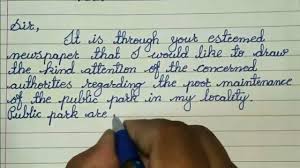 Sir,
It is through your esteemed
newspaper that I would like to draw
the kind attention of the concerned
authorities regarding the poor maintenance
of the public park in my locality.
Public park are